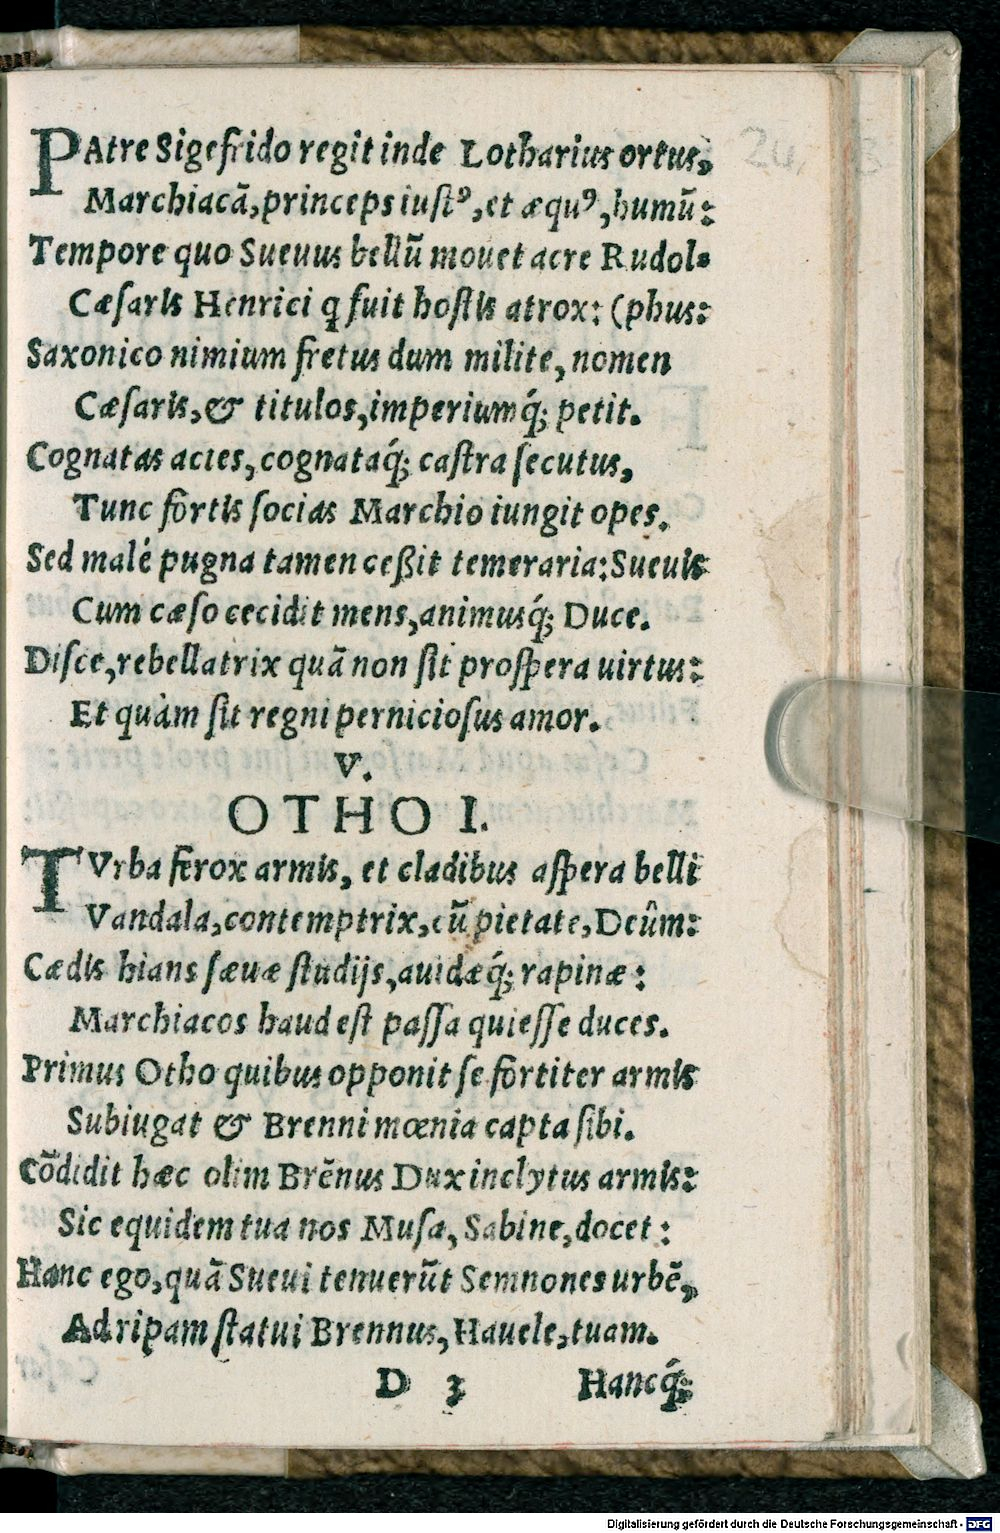 PAtre Sigefrido regit inde Lotharius ortus,
Marchiacā, princeps iuſtꝰ, et æquꝰ, humū:
Tempore quo Sueuus bellū mouet acre Rudol-
Cæſaris Henrici q̨ fuit hoſtis atrox: (phus:
Saxonico nimium fretus dum milite, nomen
Cæſaris, & titulos, imperiumq́; petit.
Cognatas acies, cognataq́; caſtra ſecutus,
Tunc fortis ſocias Marchio iungit opes.
Sed malè pugna tamen ceßit temeraria: Sueuis
Cum cæſo cecidit mens, animusq́; Duce.
Diſce, rebellatrix quā non ſit proſpera uirtus:
Et quàm ſit regni pernicioſus amor.
V.
OTHO I.
TVrba ferox armis, et cladibus aſpera belli
Vandala, contemptrix, cū pietate, Deûm:
Cædis hians ſæuæ ſtudijs, auidæq́; rapinæ:
Marchiacos haud eſt paſſa quieſſe duces.
Primus Otho quibus opponit ſe fortiter armis
Subiugat & Brenni mœnia capta ſibi.
Cōdidit hæc olim Brēnus Dux inclytus armis:
Sic equidem tua nos Muſa, Sabine, docet:
Hanc ego, quā Sueui tenuerūt Semnones urbē,
Ad ripam ſtatui Brennus, Hauele, tuam.
D 3 Hancq́;
Digitalisierung gefördert durch die Deutsche Forschungsgemeinschaft - DFG